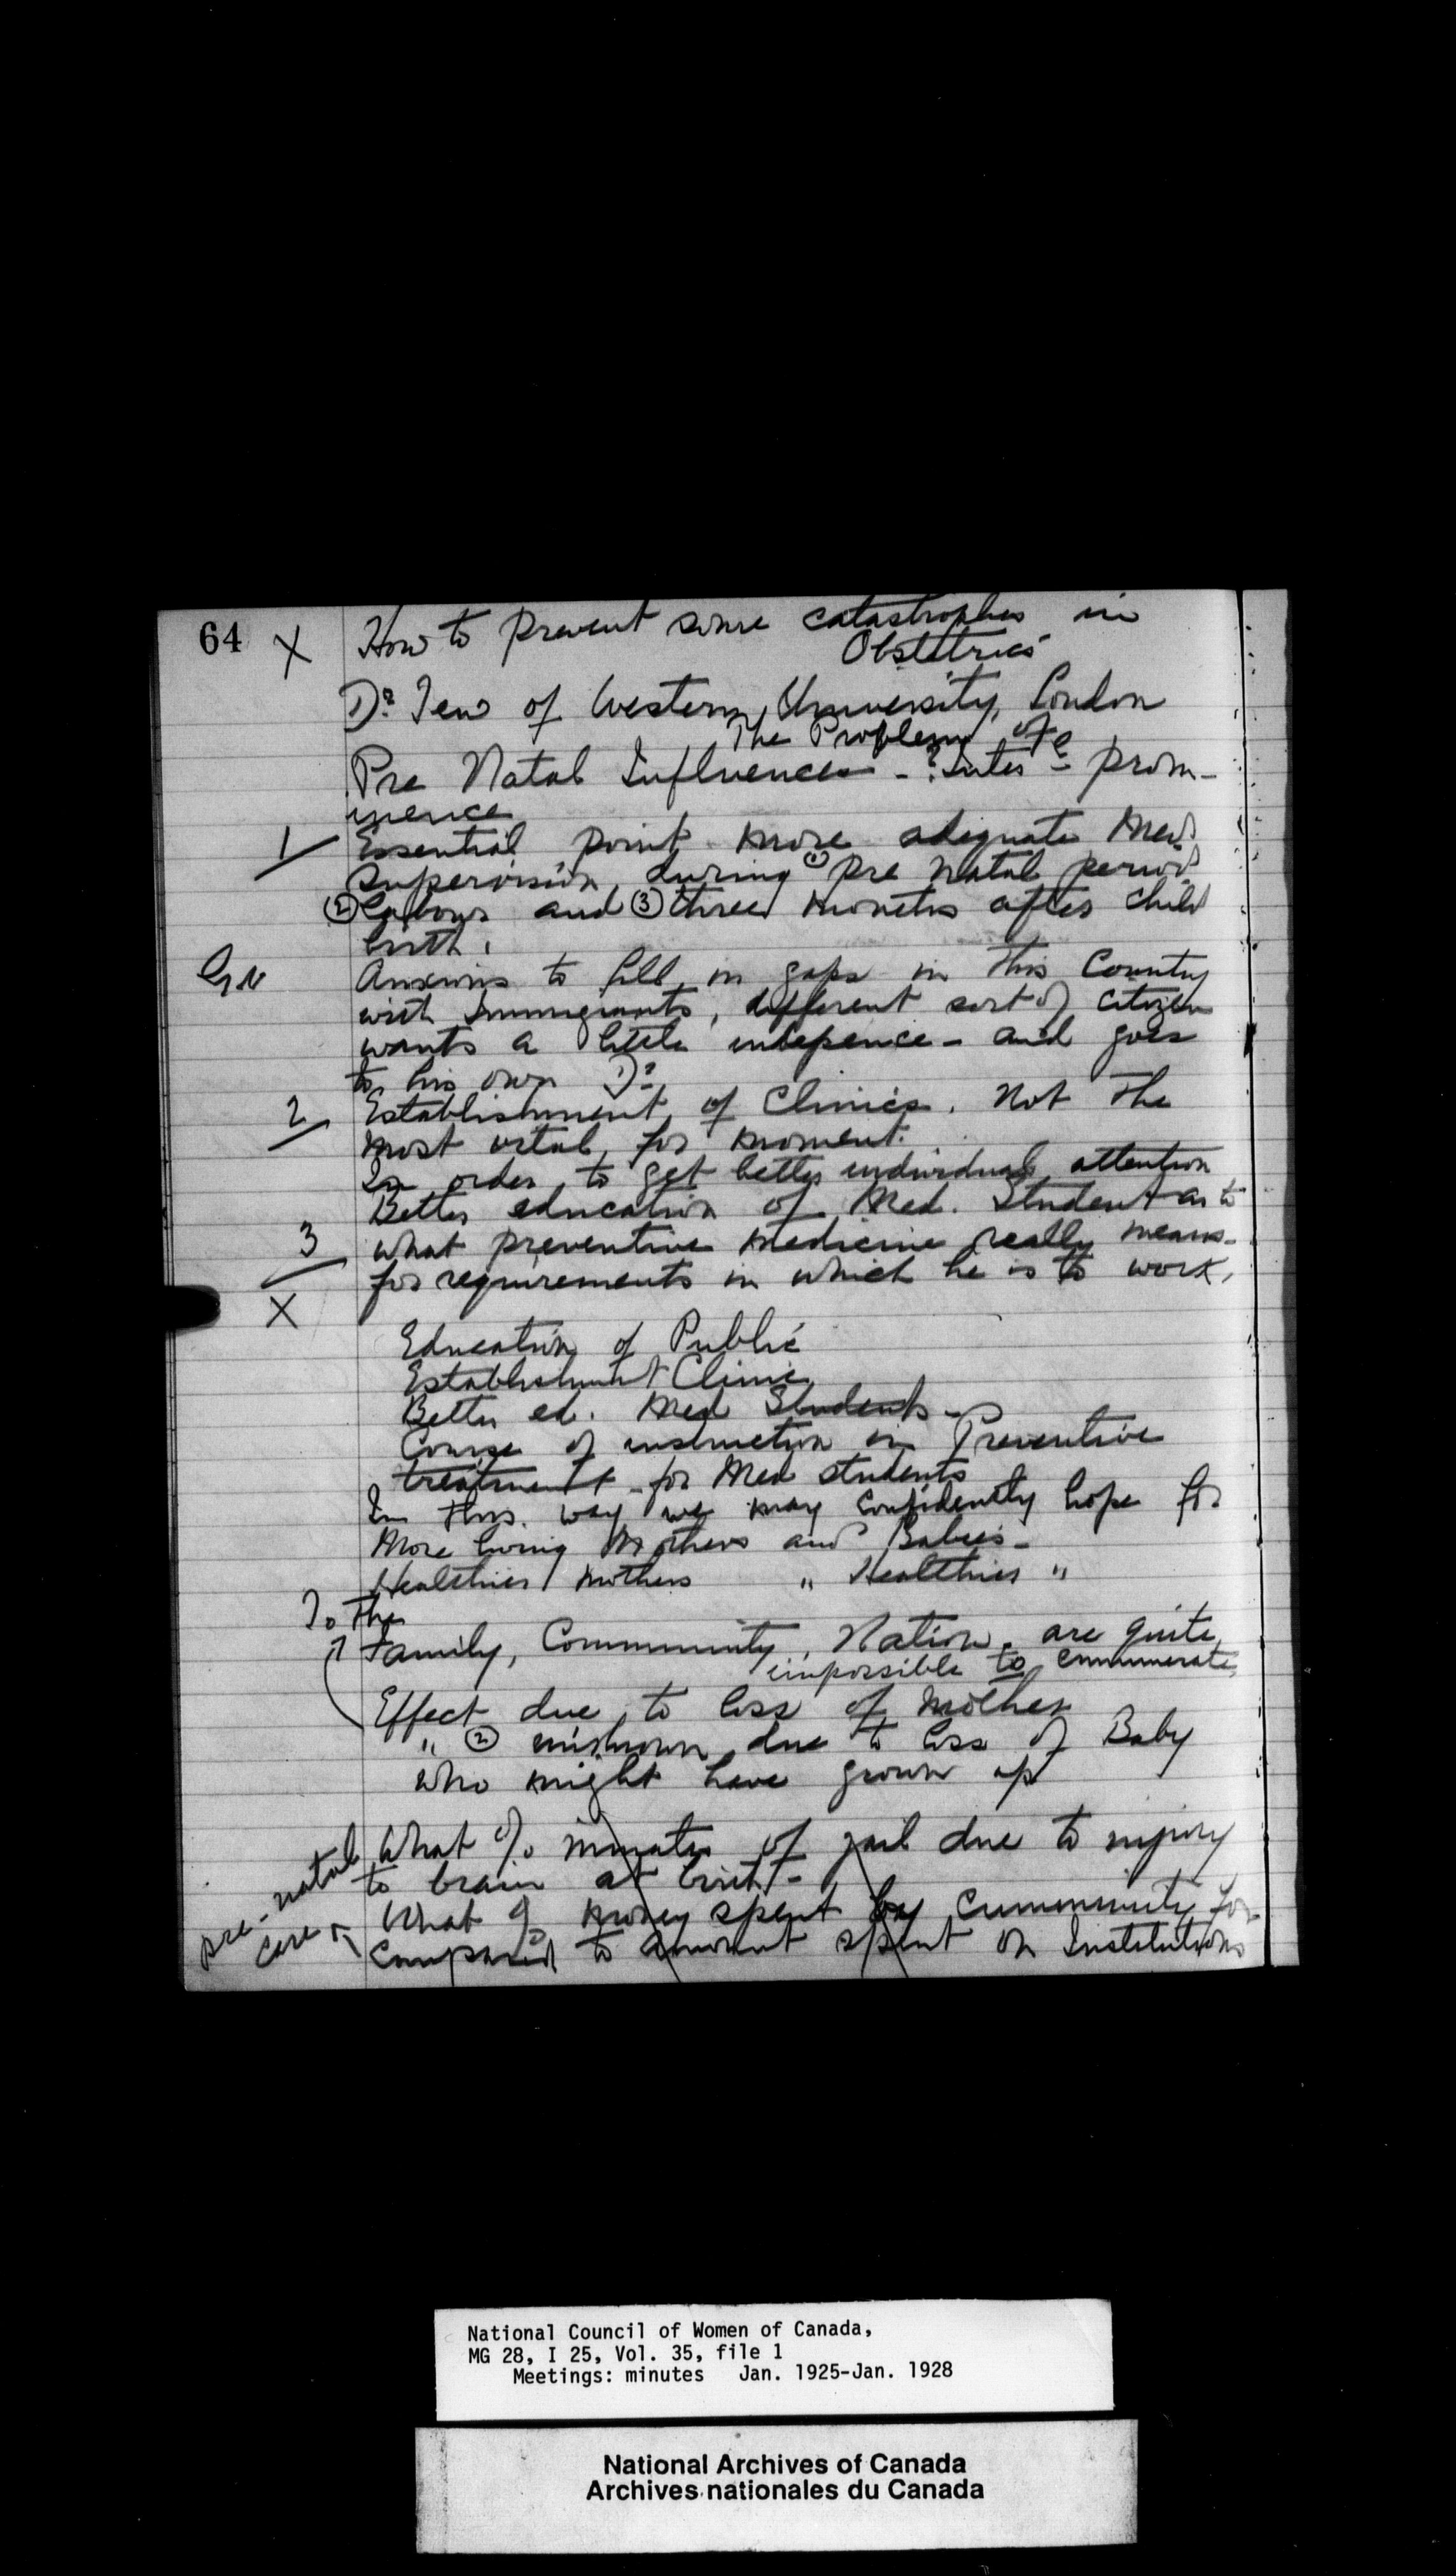 64 X How to prevent some catastrophes in
Obstetrics
Dr. Tew of Western University, London
The Problem of
Pre Natal Influences - prom-
inence
1 Essential point more adequate Med
supervision, during (1) Pre Natal period
(2) Labour and (3) three months after child
birth.
Anxious to fill in gaps in this Country
with Immigrants, different sort of citizen
wants a little indepence - and goes
to his own Dr.
2 Establishment of Clinics. Not the
most vital for moment.
In order to get better individual attention
Better education of Med. Student as to
3 what preventive medicine really means -
for requirements in which he is to work.
X
Education of Public
Establishment Clinic
Better ed. Med Students -
Course of instruction in Preventive
treatment for Med students
In this way we may confidently hope for
More living Mothers and Babies -
Healthier Mothers " Healthier "
To the
Family, Community, Nation. are quite
impossible to ennumerate,
Effect due to loss of Mother
" (2) unknown due to loss of Baby
who might have grown up
What % inmates of jail due to injury
to brain at birth -
pre-natal
care
What % money spent by Cummunity for
compared to amount spent on Institutions
National Council of Women of Canada,
MG 28, I 25, Vol. 35, file 1
Meetings: minutes Jan. 1925-Jan. 1928
National Archives of Canada
Archives nationales du Canada